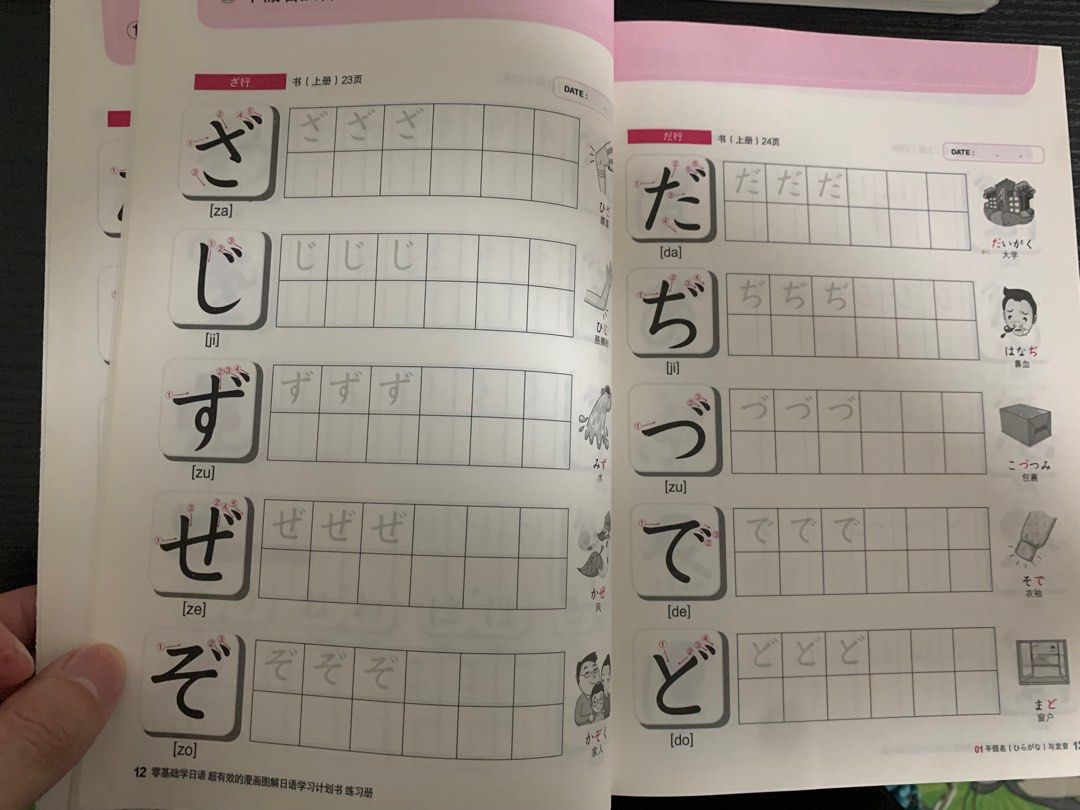 ざ行 书（上册）23页
DATE :
ざ ざ ざ ざ
[za]
じ じ じ じ
[ji]
ず ず ず ず
[zu]
みず
水
ぜ ぜ ぜ ぜ
[ze]
かぜ
风
ぞ ぞ ぞ ぞ
[zo]
かぞく
家人
12 零基础学日语 超有效的漫画图解日语学习计划书 练习册
だ行 书（上册）24页
DATE : . .
だ だ だ だ
[da]
だいがく
大学
ぢ ぢ ぢ ぢ
[ji]
はなぢ
鼻血
づ づ づ づ
[zu]
こづつみ
包裹
で で で で
[de]
そで
衣袖
ど ど ど ど
[do]
まど
窗户
01 平假名（ひらがな）与发音